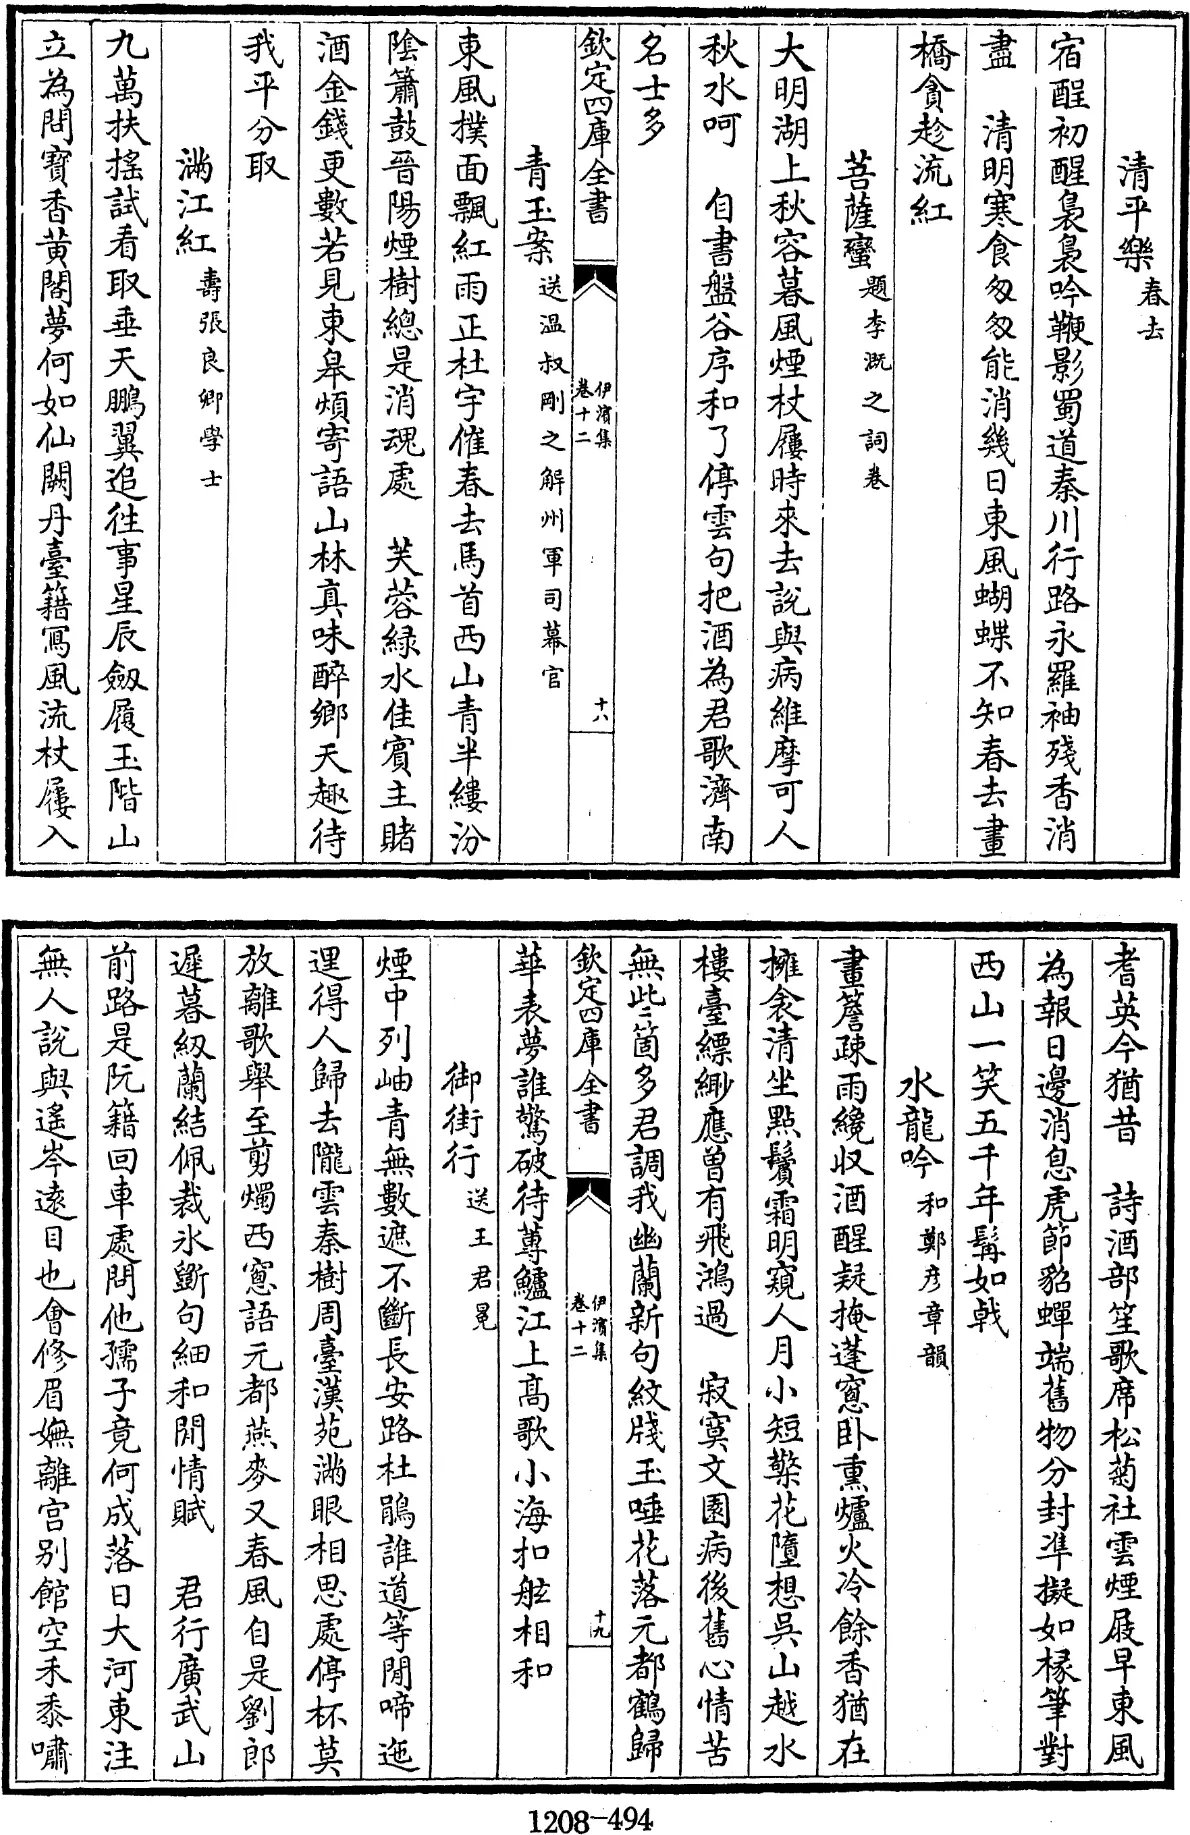 清平樂春去
宿酲初醒裊裊吟鞭影蜀道秦川行路永羅袖殘香消
盡　清明寒食匆匆能消幾日東風蝴蝶不知春去畫
橋貪趁流紅
菩薩蠻題李溉之詞卷
大明湖上秋容暮風煙杖屨時來去說與病維摩可人
秋水呵　自書盤谷序和了停雲句把酒為君歌濟南
名士多
欽定四庫全書
伊濱集
卷十二
十八
青玉案送溫叔剛之解州軍司幕官
東風撲面飄紅雨正杜宇催春去馬首西山青半縷汾
陰簫鼓晉陽煙樹總是消魂處　芙蓉緑水佳賓主賭
酒金錢更數若見東皋煩寄語山林真味醉鄉天趣待
我平分取
滿江紅壽張良卿學士
九萬扶搖試看取垂天鵬翼追徃事星辰劒履玉階山
立為問寶香黃閣夢何如仙闕丹臺籍寫風流杖屨入
耆英今猶昔　詩酒部笙歌席松菊社雲煙屐早東風
為報日邊消息虎節貂蟬端舊物分封準擬如椽筆對
西山一笑五千年髯如戟
水龍吟和鄭彦章韻
畫簷疎雨纔收酒醒疑掩蓬窻臥熏爐火冷餘香猶在
擁衾清坐點鬢霜明窺人月小短檠花墮想吳山越水
樓臺縹緲應曾有飛鴻過　寂寞文園病後舊心情苦
無些箇多君調我幽蘭新句紋牋玉唾花落元都鶴歸
欽定四庫全書
伊濱集
卷十二
十九
華表夢誰驚破待蓴鱸江上高歌小海扣舷相和
御街行送王君冕
煙中列岫青無數遮不斷長安路杜鵑誰道等閒啼迤
逕得人歸去隴雲秦樹周臺漢苑滿眼相思處停杯莫
放離歌舉至剪燭西窻語元都燕麥又春風自是劉郎
遲暮紉蘭結佩裁氷斵句細和閒情賦　君行廣武山
前路是阮籍回車處問他孺子竟何成落日大河東注
無人說與遙岑遠目也會修眉嫵離宮别館空禾黍嘯
1208-494